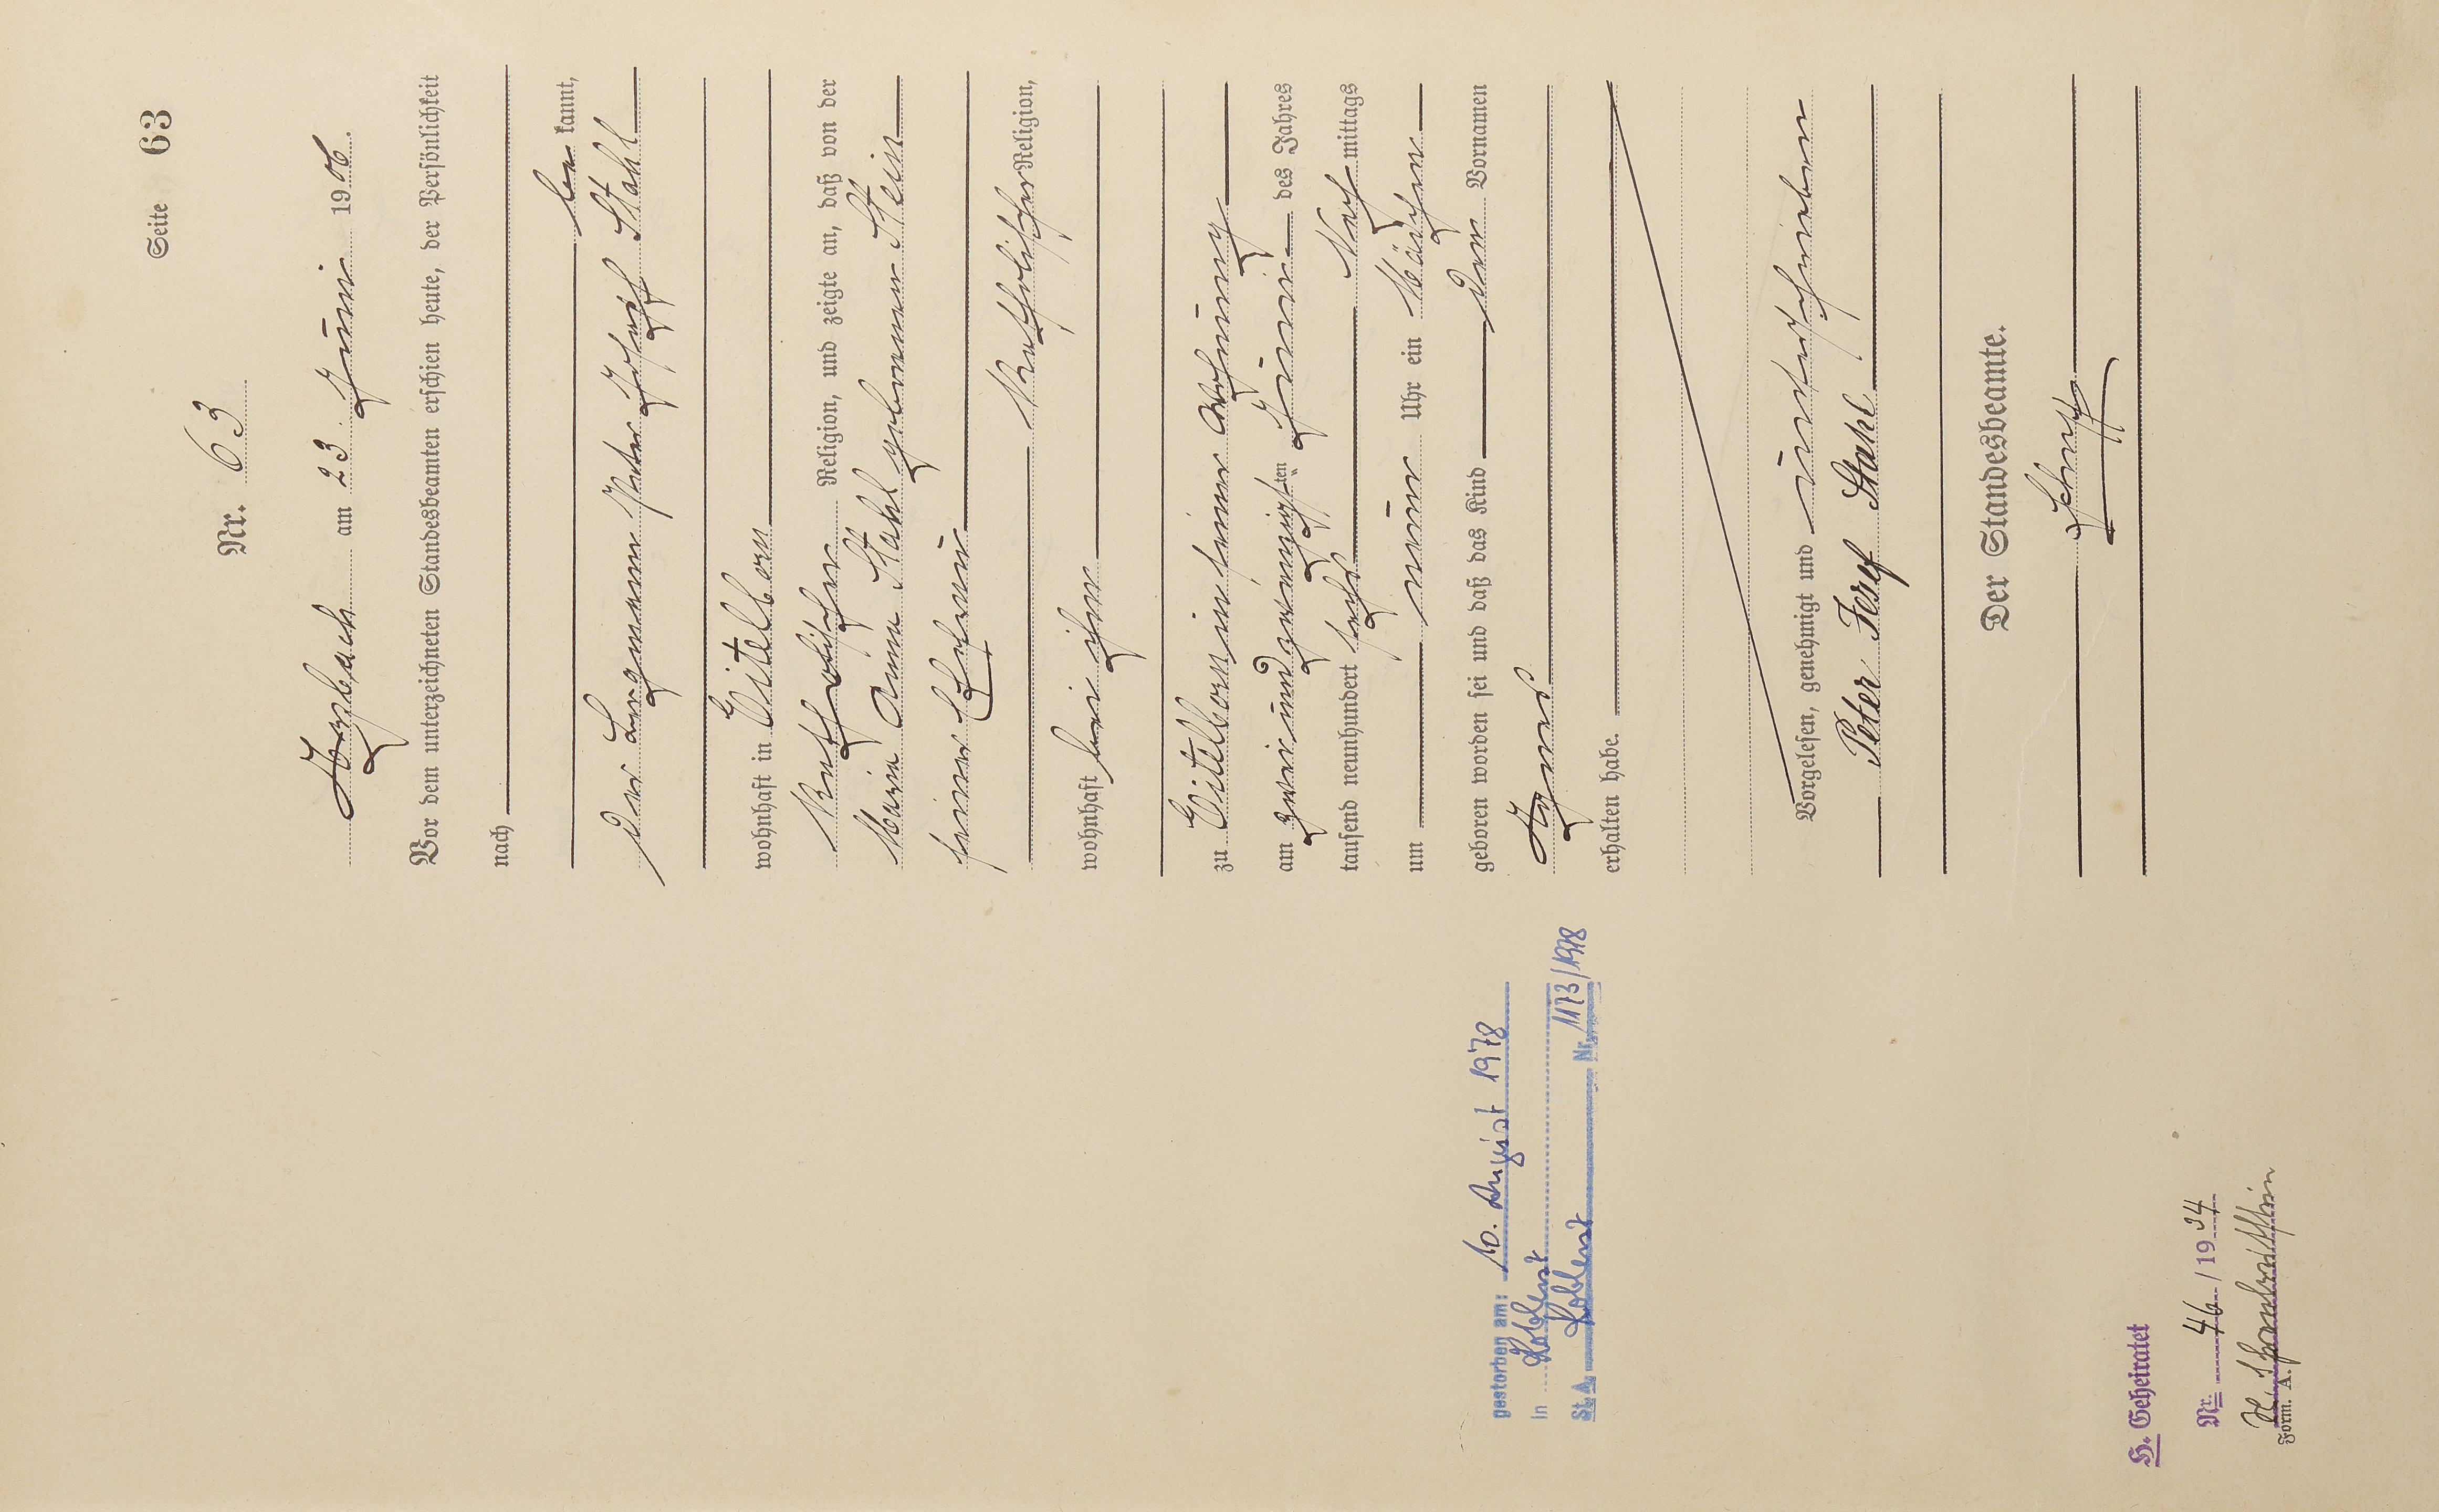 Seite 63
Nr. 63
Arzbach am 23. Juni 1906.
Vor dem unterzeichneten Standesbeamten erschien heute, der Persönlichkeit
nach
be kannt,
der Bergmann Peter Josef Stahl
wohnhaft in Eitelborn
katholischer Religion, und zeigte an, daß von der
Maria Anna Stahl geborenen Stein
seiner Ehefrau
katholischer Religion,
wohnhaft bei ihm
zu Eitelborn in seiner Wohnung
am zweiundzwanzigsten Juni des Jahres
tausend neunhundert sechs Nach mittags
um neun Uhr ein Mädchen
geboren worden sei und daß das Kind den Vornamen
Agnes
erhalten habe.
Vorgelesen, genehmigt und unterschrieben
Peter Josef Stahl
Der Standesbeamte.
gestorben am: 10. August 1978
in Koblenz
St. A. Koblenz Nr. 1173/1978
H. Geheiratet
Nr. 46/1934
Form. A.